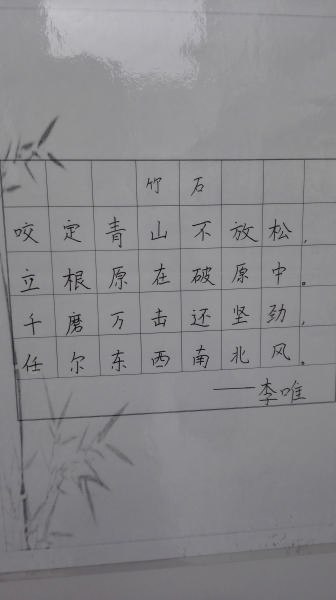 竹石
咬定青山不放松，
立根原在破原中。
千磨万击还坚劲，
任尔东西南北风。
——李唯